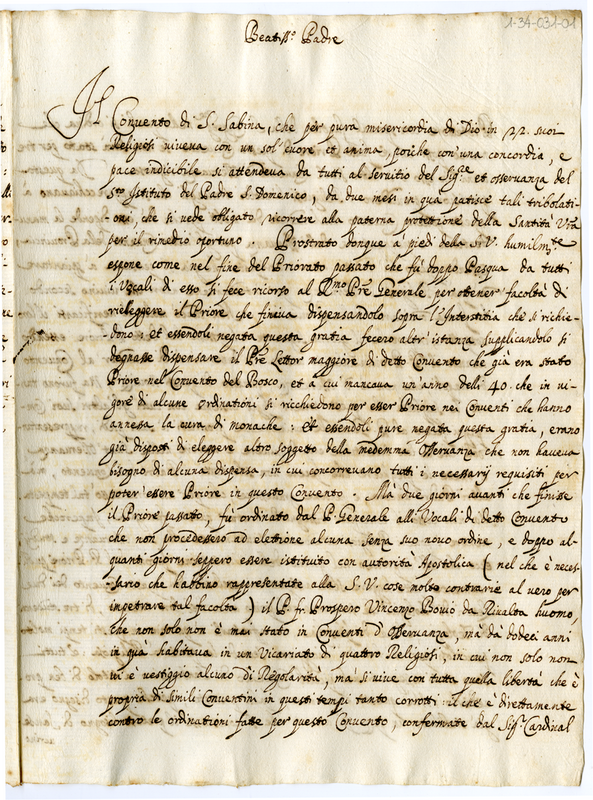 1-34-031-01
Beatiss.º Padre
Il Convento di S. Sabina, che per pura misericordia di Dio in 22. suoi
Religiosi viveva con un sol cuore et anima, poiche con una concordia, e
pace indicibile si attendeva da tutti al Servitio del Sig.re et osservanza del
S.to Istituto del Padre S. Domenico, da due mesi in qua patisce tali tribolati-
oni, che si vede obligato ricorrere alla paterna protettione della Santità V.ra
per il rimedio oportuno. Prostrato dunque a piedi della S. V. humilm.te
espone come nel fine del Priorato passato che fù doppo Pasqua da tutti
i Vocali di esso si fece ricorso al R.mo Pre Generale per ottener facoltà di
rieleggere il Priore che finiva dispensandolo sopra l'Interstitia che si richie-
dono: et essendoli negata questa gratia fecero altr'istanza supplicandolo si
degnasse dispensare il Pre Lettor maggiore di detto Convento che già era stato
Priore nel Convento del Bosco, et a cui mancava un'anno delli 40. che in vi-
gore di alcune ordinationi si ricchiedono per esser Priore nei Conventi che hanno
annessa la cura di monache: et essendoli pure negata questa gratia, erano
già disposti di eleggere altro soggetto della medemma Osservanza che non haveva
bisogno di alcuna dispensa, in cui concorrevano tutti i necessarij requisiti per
poter essere Priore in questo Convento. Mà due giorni avanti che finisse
il Priore passato, fù ordinato dal P. Generale alli Vocali di detto Convento
che non procedessero ad elettione alcuna senza suo novo ordine, e doppo al-
quanti giorni seppero essere istituito con autorità Apostolica (nel che è neces-
sario che habbino rappresentate alla S. V. cose molto contrarie al vero per
impetrare tal facoltà) il P. fr. Prospero Vincenzo Bovio da Rivalta huomo,
che non solo non è mai stato in Conventi d'Osservanza, mà da dodeci anni
in quà habitava in un Vicariato di quattro Religiosi, in cui non solo non
vi è vestiggio alcuno di Regolarità, ma si vive con tutta quella libertà che è
propria di simili Conventini in questi tempi tanto corrotti: il che è direttamente
contro le ordinationi fatte per questo Convento, confermate dal Sig.r Cardinal